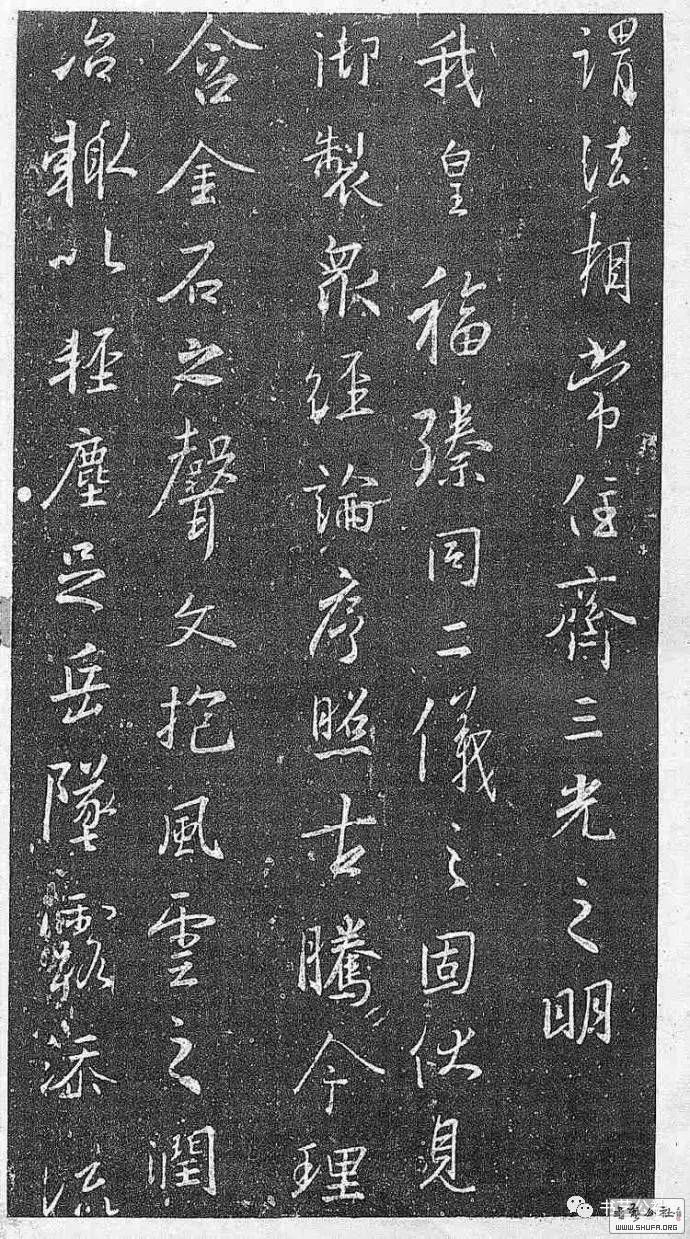 謂法相常住齊三光之明
我皇福臻同二儀之固伏見
御製眾經論序照古騰今理
含金石之聲文抱風雲之潤
治輙以輕塵足岳墜露添流
WWW.SHUFA.ORG